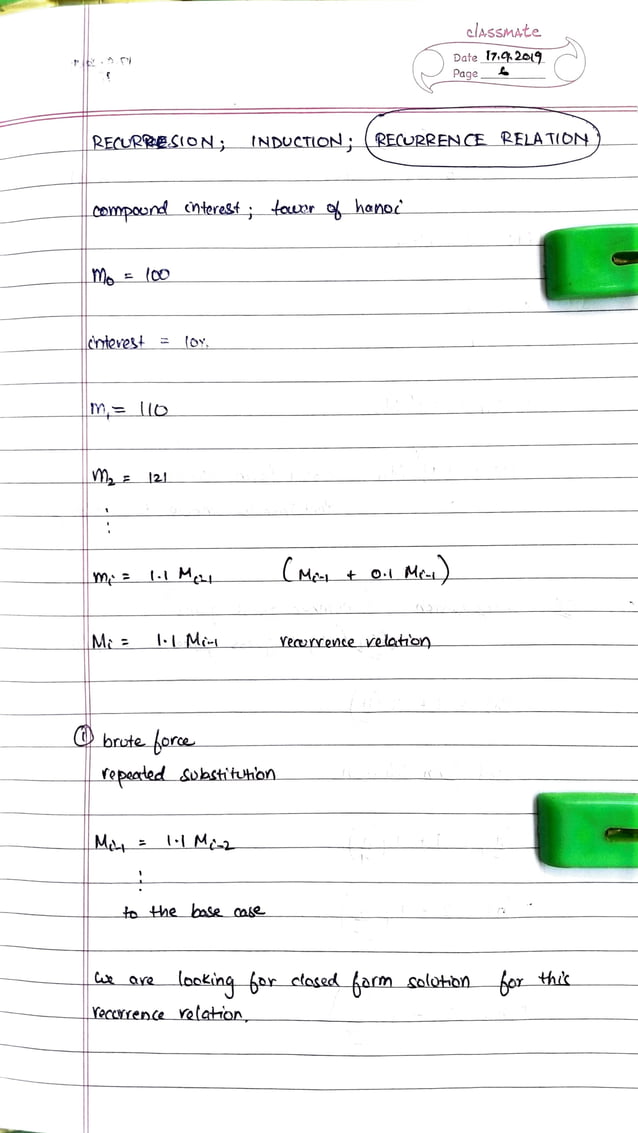 classmate
Date 17.9.2019
Page
RECURRESION; INDUCTION; RECURRENCE RELATION
compound interest; tower of hanoi
M₀ = 100
interest = 10%
M₁ = 110
M₂ = 121
⋮
Mᵢ = 1.1 Mᵢ₋₁ (Mᵢ₋₁ + 0.1 Mᵢ₋₁)
Mᵢ = 1.1 Mᵢ₋₁ recurrence relation
① brute force
repeated substitution
Mᵢ₋₁ = 1.1 Mᵢ₋₂
⋮
to the base case
We are looking for closed form solution for this
recurrence relation.